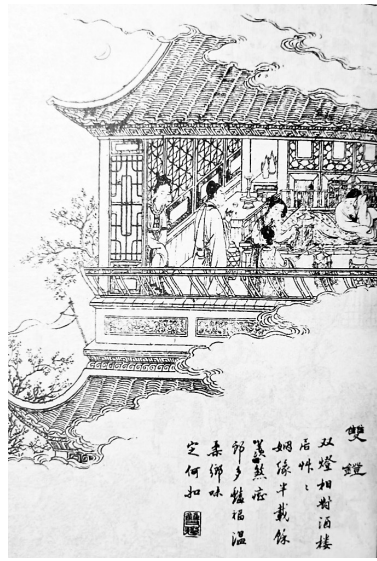 雙鐙
双燈相對酒楼
居
姻緣半載餘
羨煞痴
郎多豔福温
柔鄉味
定何如